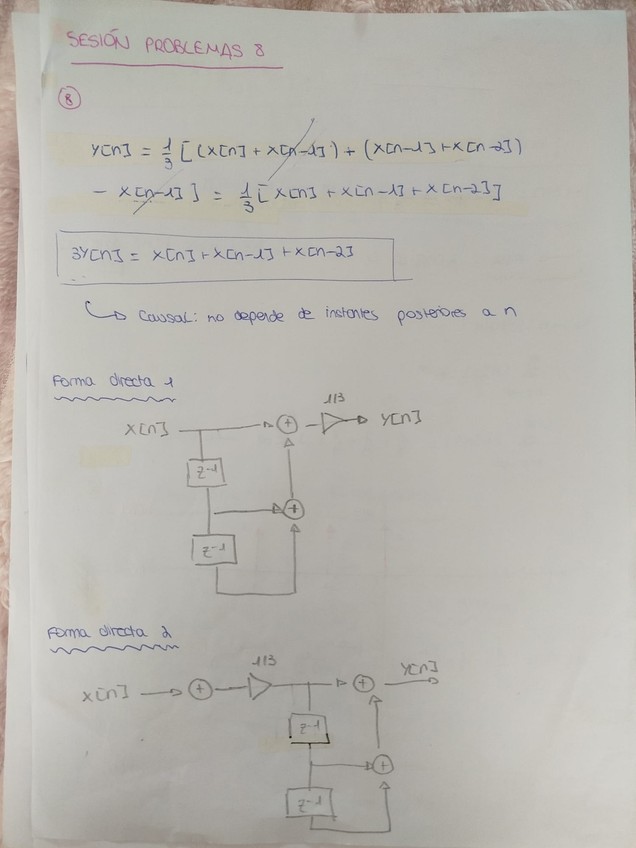 SESIÓN PROBLEMAS 8
8
Y[n] = 1/3 [(X[n] + X[n-1]) + (X[n-1] + X[n-2])
- X[n-1]] = 1/3 [X[n] + X[n-1] + X[n-2]]
3Y[n] = X[n] + X[n-1] + X[n-2]
Causal: no depende de instantes posteriores a n
Forma directa 1
1/3
X[n] + Y[n]
z-1
+
z-1
Forma directa 2
1/3 Y[n]
X[n] + +
z-1
+
z-1